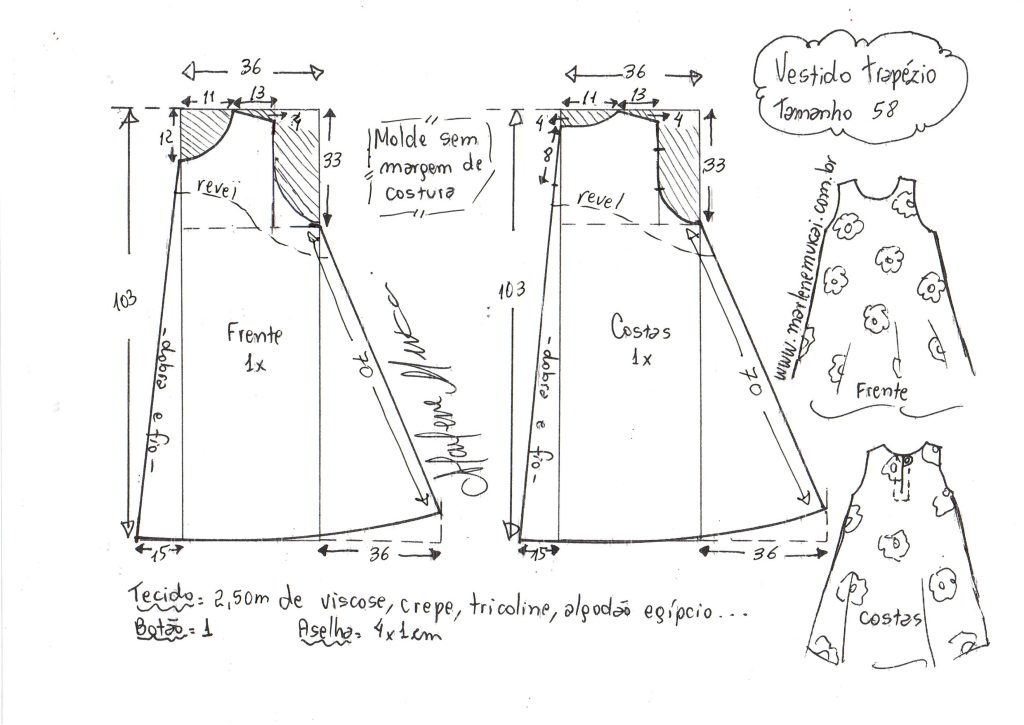 Vestido trapézio
Tamanho 58
36
11
13
4
12
33
revel
103
Frente
1x
70
-dobra e fio-
15
36
Molde sem
margem de
costura
Marlene Mukai
36
11
13
4
4
8
33
revel
103
Costas
1x
70
-dobra e fio-
15
36
www.marlenemukai.com.br
Frente
Costas
Tecido= 2,50m de viscose, crepe, tricoline, algodão egípcio...
Botão= 1
Aselha= 4x1cm